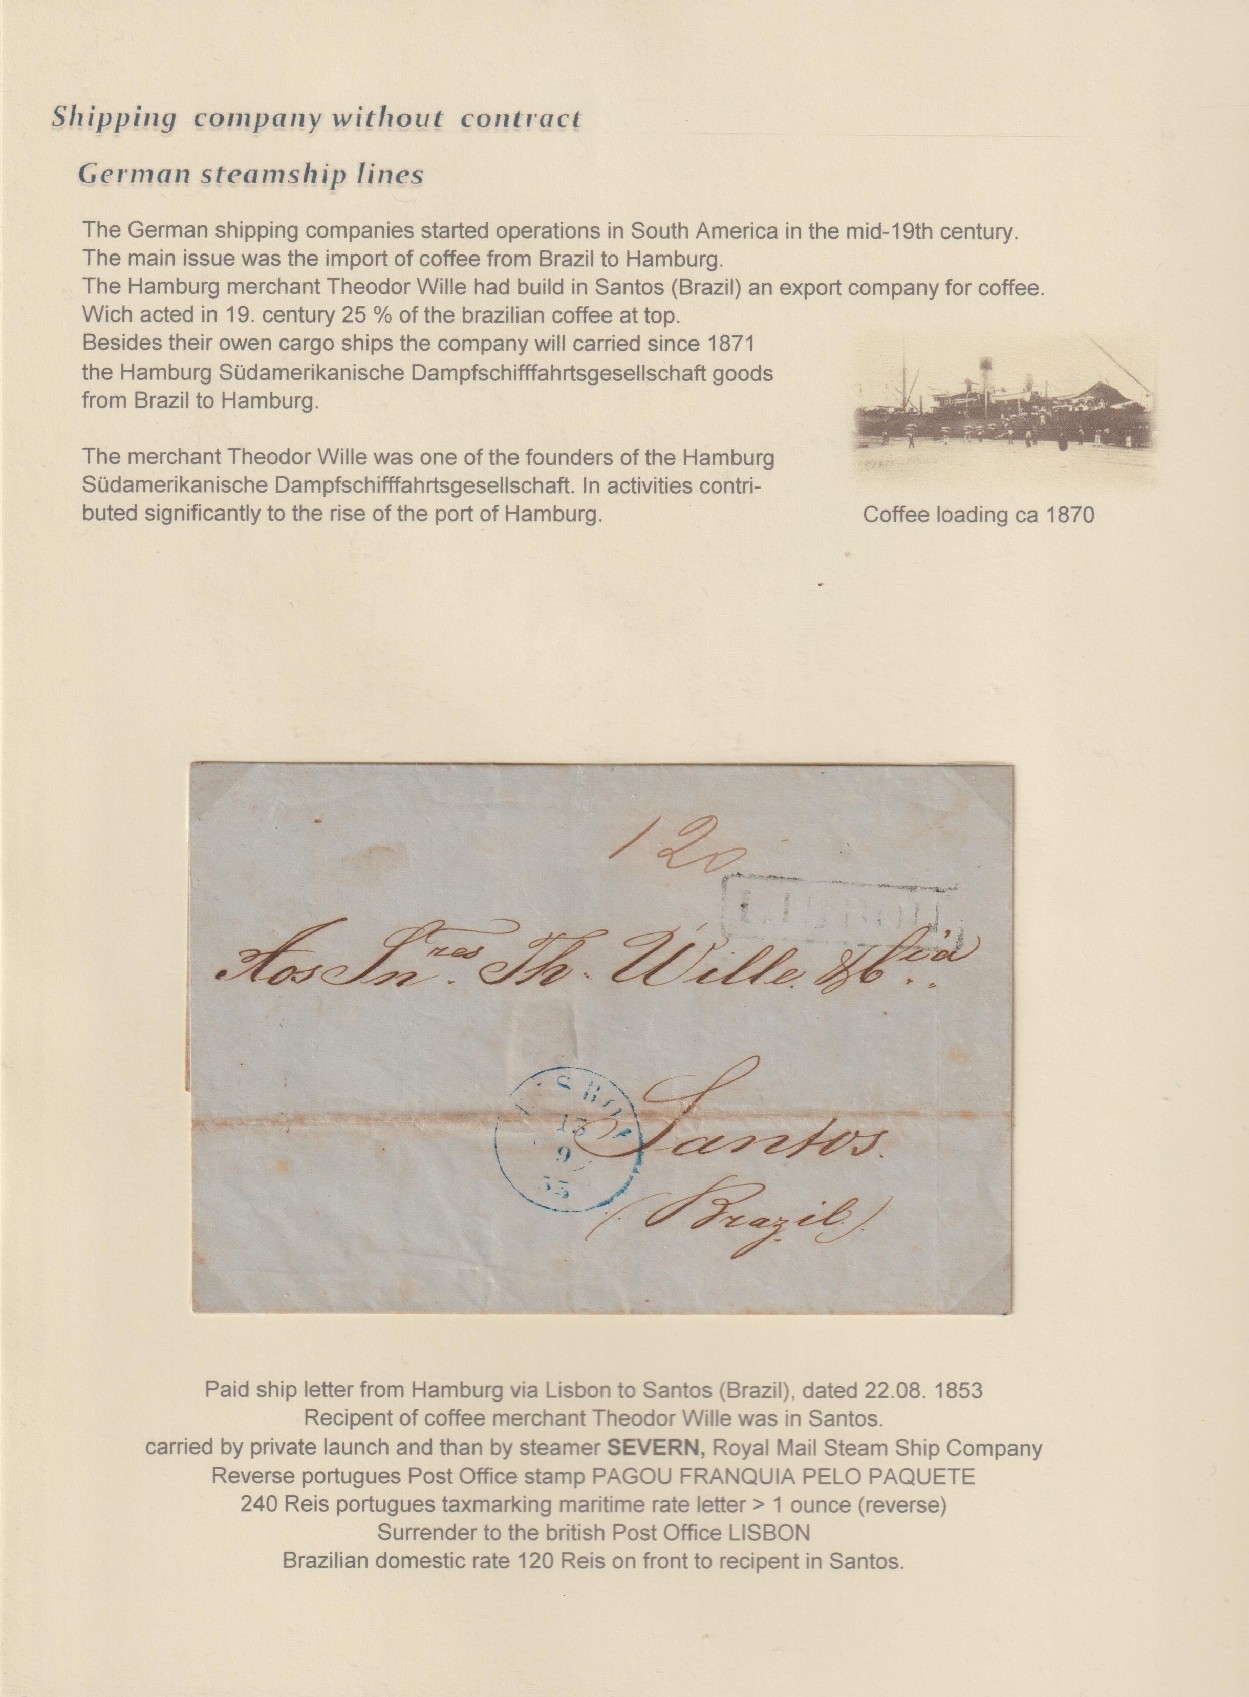 Shipping company without contract
German steamship lines
The German shipping companies started operations in South America in the mid-19th century.
The main issue was the import of coffee from Brazil to Hamburg.
The Hamburg merchant Theodor Wille had build in Santos (Brazil) an export company for coffee.
Wich acted in 19. century 25 % of the brazilian coffee at top.
Besides their owen cargo ships the company will carried since 1871
the Hamburg Südamerikanische Dampfschifffahrtsgesellschaft goods
from Brazil to Hamburg.
The merchant Theodor Wille was one of the founders of the Hamburg
Südamerikanische Dampfschifffahrtsgesellschaft. In activities contri-
buted significantly to the rise of the port of Hamburg.
Coffee loading ca 1870
120
Aos Snres. Th. Wille & Cia
LISBON
13
9
53
Santos.
(Brazil)
Paid ship letter from Hamburg via Lisbon to Santos (Brazil), dated 22.08. 1853
Recipent of coffee merchant Theodor Wille was in Santos.
carried by private launch and than by steamer SEVERN, Royal Mail Steam Ship Company
Reverse portugues Post Office stamp PAGOU FRANQUIA PELO PAQUETE
240 Reis portugues taxmarking maritime rate letter > 1 ounce (reverse)
Surrender to the british Post Office LISBON
Brazilian domestic rate 120 Reis on front to recipent in Santos.